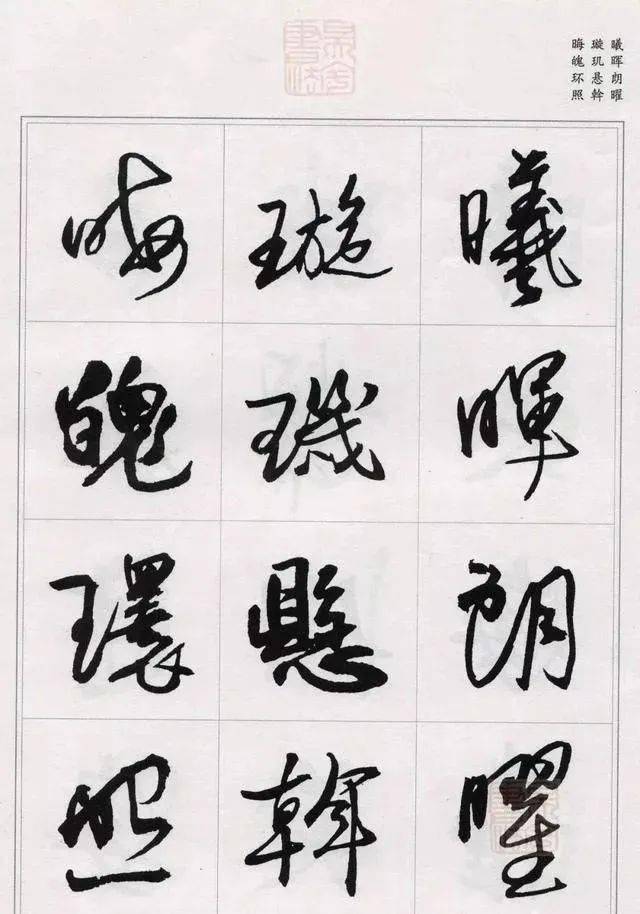 曦晖朗曜
璇玑悬斡
晦魄环照
曦暉朗曜
璇璣懸斡
晦魄環照